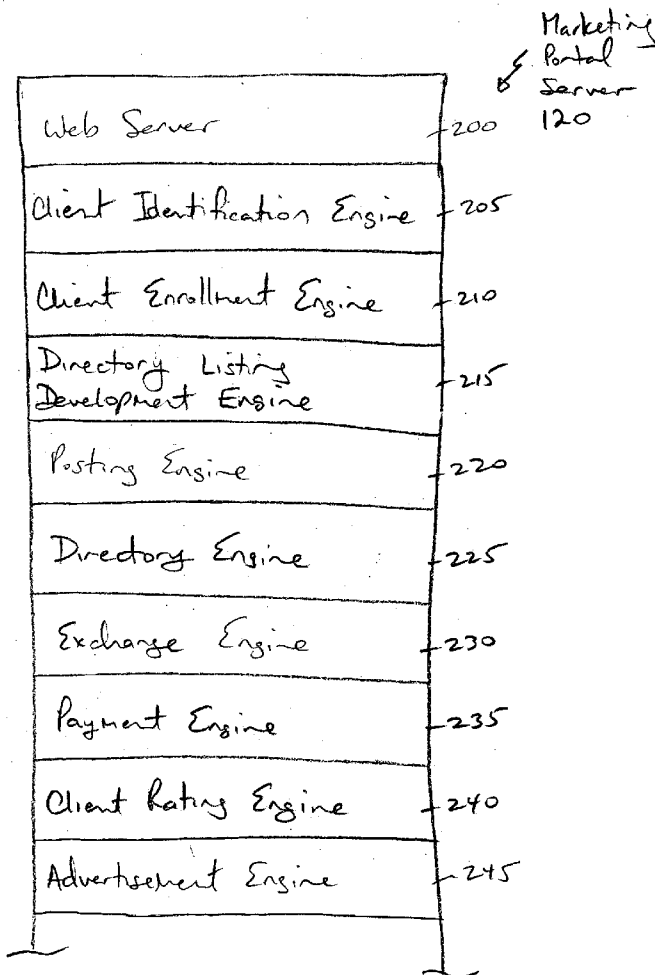 Marketing
Portal
Server
120
Web Server 200
Client Identification Engine 205
Client Enrollment Engine 210
Directory Listing
Development Engine 215
Posting Engine 220
Directory Engine 225
Exchange Engine 230
Payment Engine 235
Client Rating Engine 240
Advertisement Engine 245